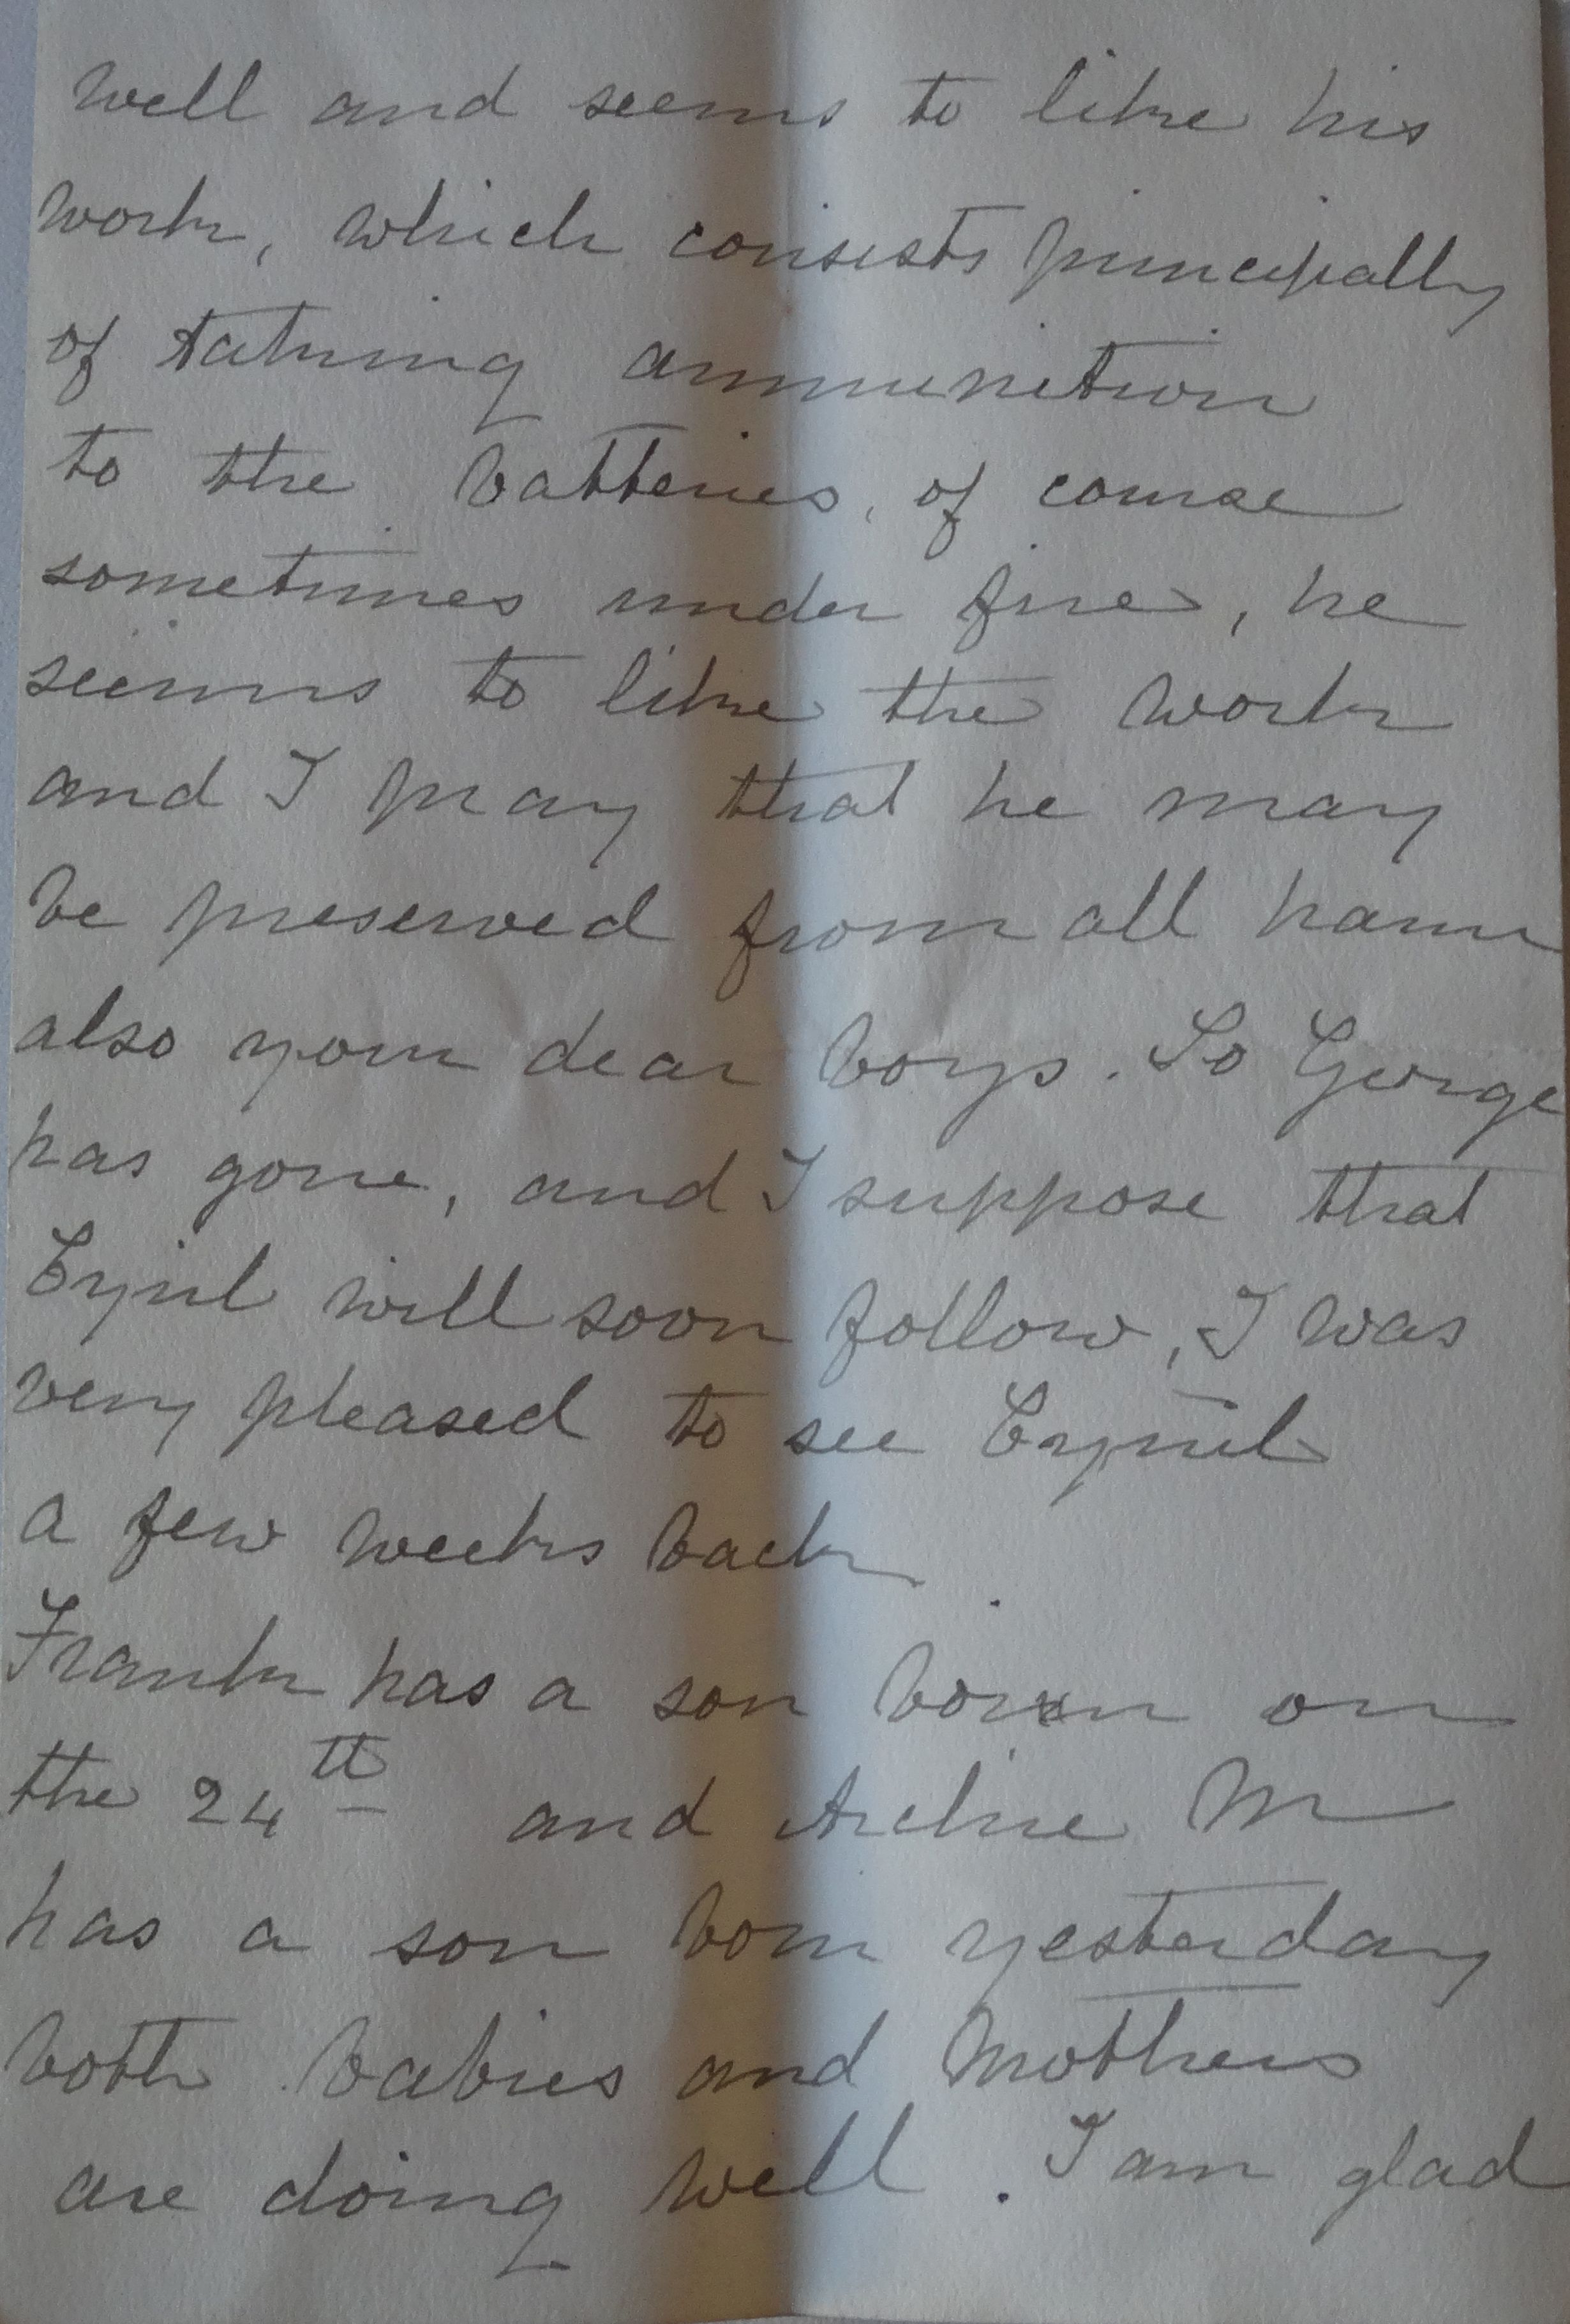 well and seems to like his
work, which consists principally
of taking ammunition
to the batteries, of course
sometimes under fire, he
seems to like the work
and I pray that he may
be preserved from all harm
also your dear boys. So George
has gone, and I suppose that
Cyril will soon follow, I was
very pleased to see Cyril
a few weeks back
Frank has a son born on
the 24th and Archie M
has a son born yesterday
both babies and Mothers
are doing well. I am glad